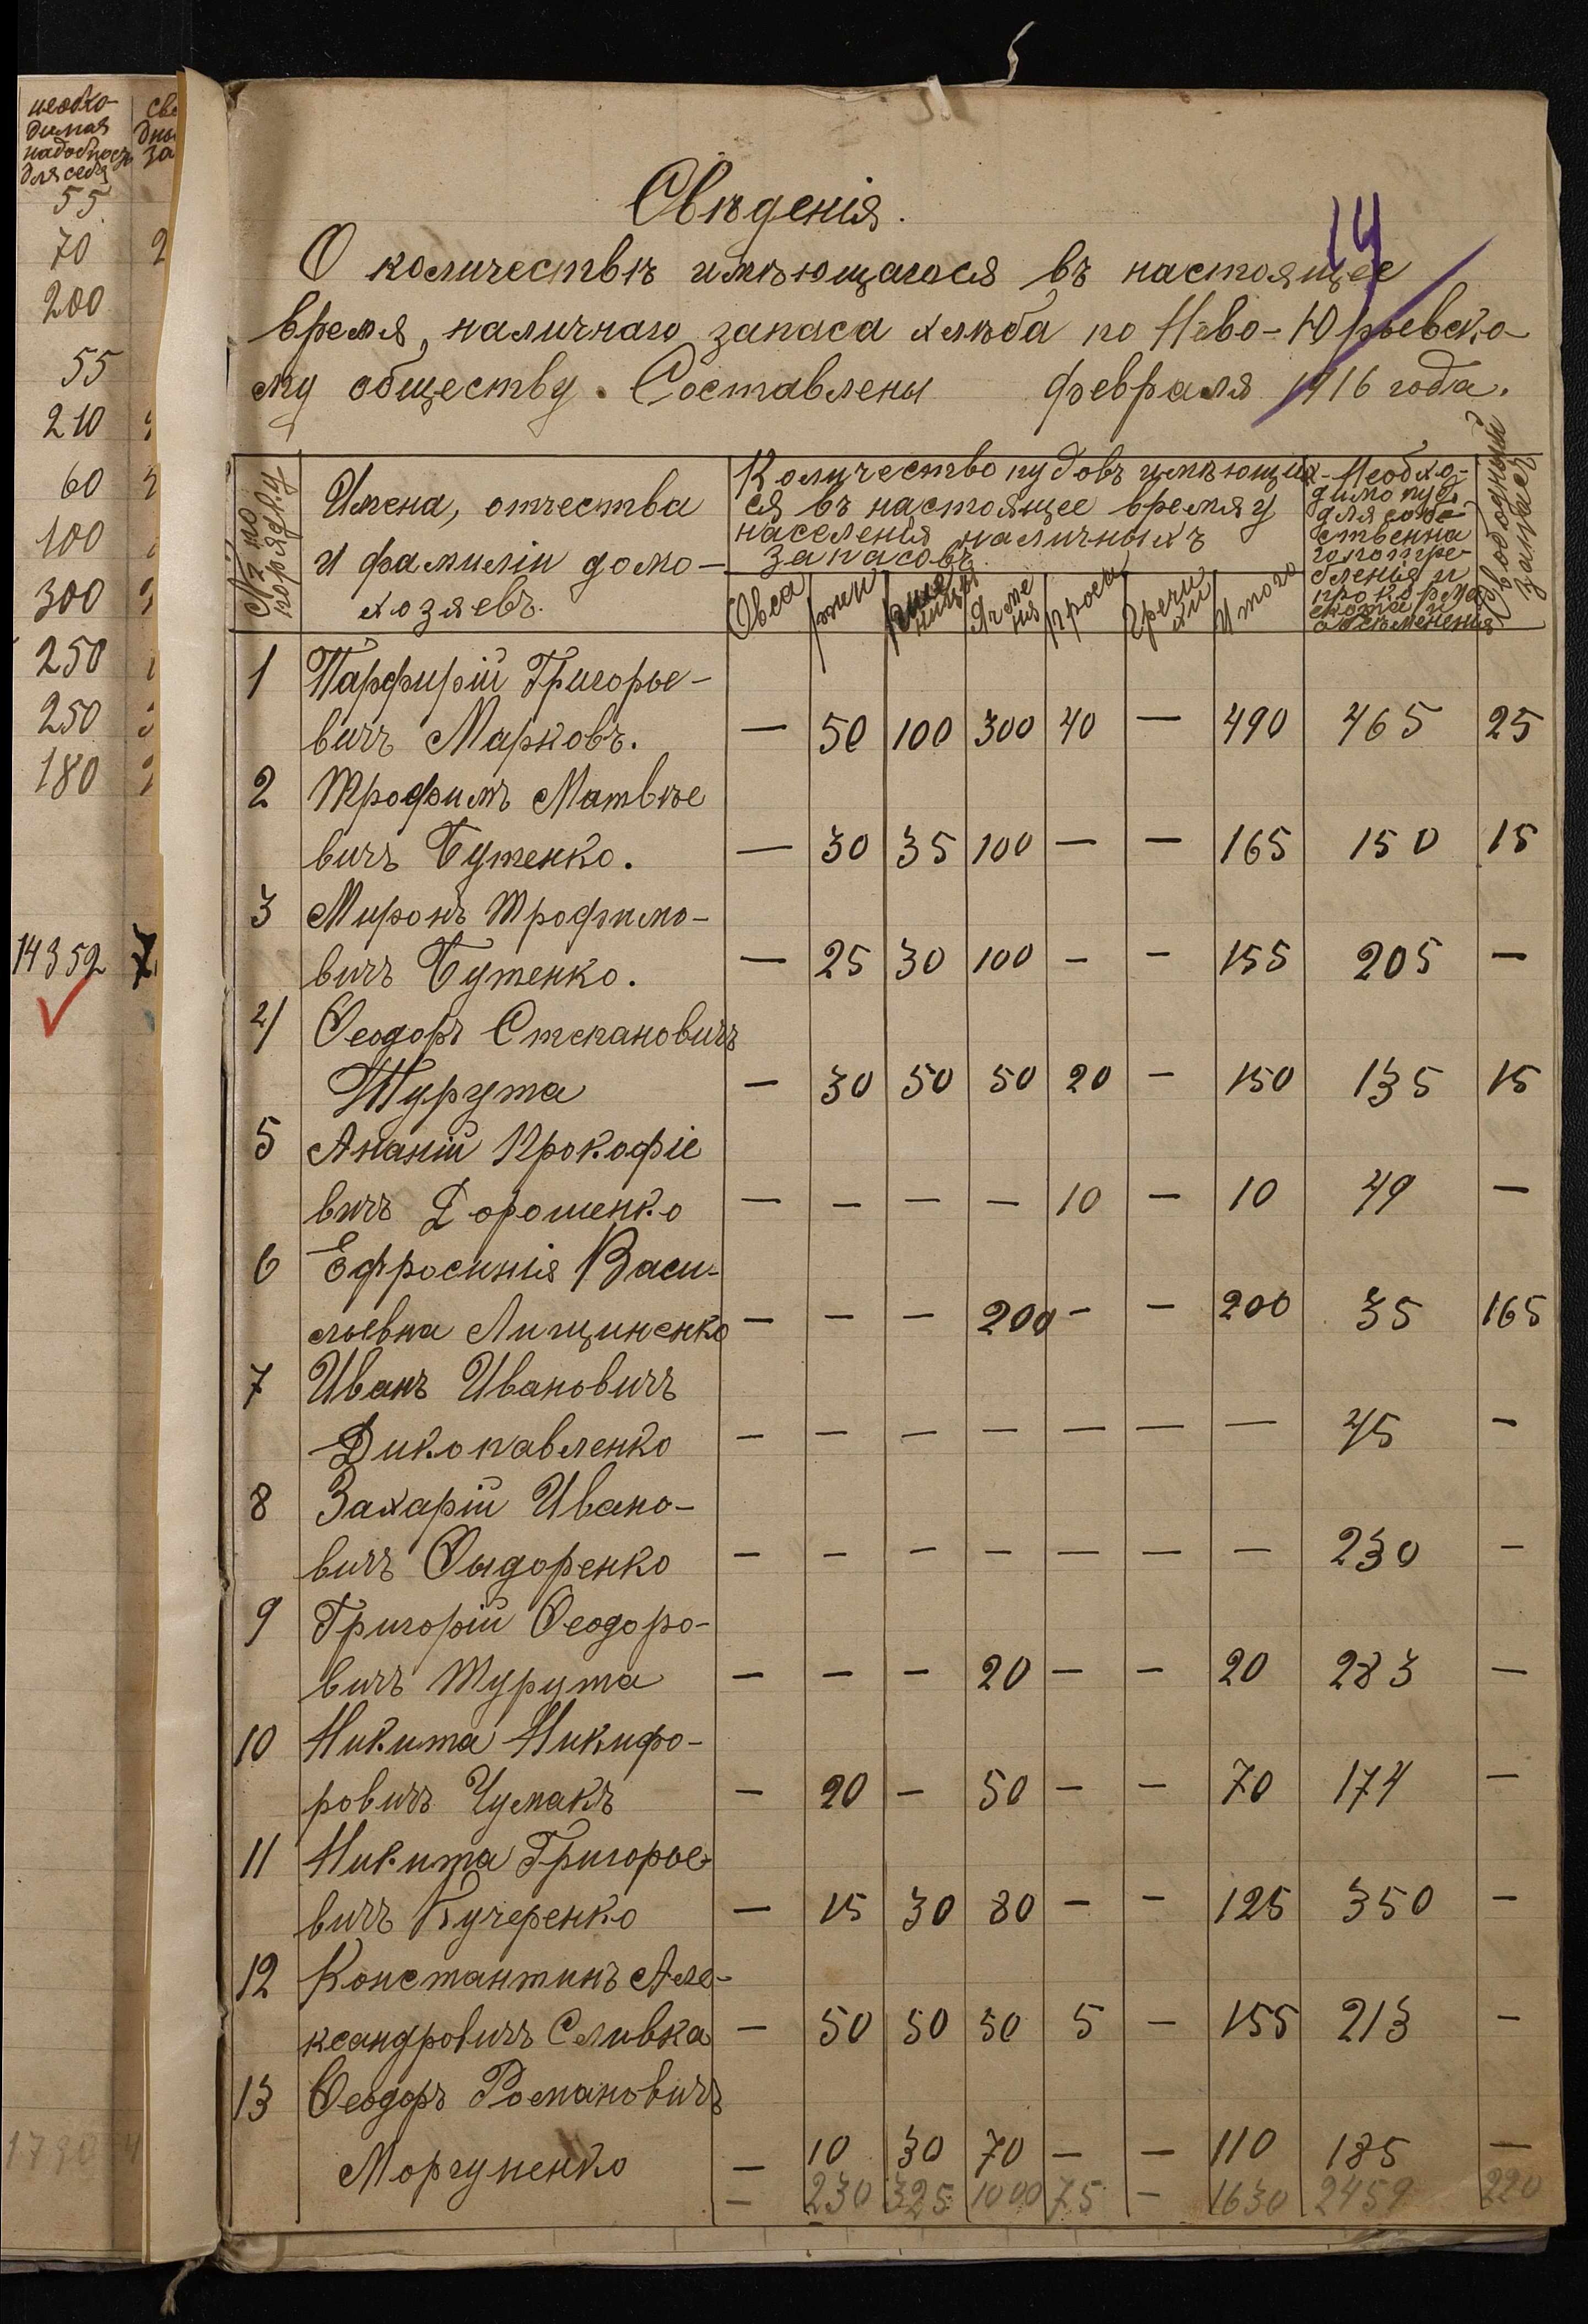 необхо-
димая
надобность
для себя
55
70
200
55
210
60
100
300
250
250
180
14352
14
Свѣденія.
О количествѣ имѣющагося въ настоящее
время, наличнаго запаса хлѣба по Ново-Юрьевско-
му обществу. Составлены февраля 1916 года.
№№ по порядку | Имена, отчества и фамиліи домо-хозяевъ. | Количество пудовъ имѣющих-ся въ настоящее время у населенія наличныхъ запасовъ | Необхо-димо пуд. для собс-ственна го потре-бленія и прокорма скота и обсѣмененія | Свободный запасъ
Овса | ржи | пше ницы | Ячме ня | проса | Гречи хи | Итого
1 Парфирій Григорье-
вичъ Марковъ. — 50 100 300 40 — 490 465 25
2 Трофимъ Матвѣе
вичъ Бутенко. — 30 35 100 — — 165 150 15
3 Миронъ Трофимо-
вичъ Бутенко. — 25 30 100 — — 155 205 —
4 Ѳеодоръ Степановичъ
Турута — 30 50 50 20 — 150 135 15
5 Ананій Прокофіе
вичъ Дорошенко — — — — 10 — 10 49 —
6 Ефросинія Васи-
льевна Лищиненко — — — 200 — — 200 35 165
7 Иванъ Ивановичъ
Дикопавленко — — — — — — — 45 —
8 Захарій Ивано-
вичъ Сыдоренко — — — — — — — 230 —
9 Григорій Ѳеодоро-
вичъ Турута — — — 20 — — 20 283 —
10 Никита Никифо-
ровичъ Чумакъ — 20 — 50 — — 70 174 —
11 Никита Григорье-
вичъ Кучеренко — 15 30 80 — — 125 350 —
12 Константинъ Але-
ксандровичъ Сливка — 50 50 50 5 — 155 213 —
13 Ѳеодоръ Романовичъ
Моргуненко — 10 30 70 — — 110 185 —
— 230 325 1000 75 — 1630 2459 220